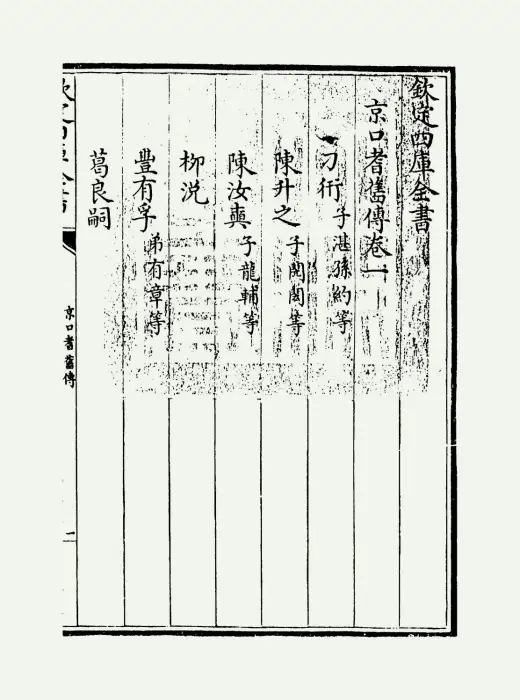 欽定四庫全書
京口耆舊傳卷一
刁衎 子湛孫約等
陳升之 子閱閎等
陳汝奭 子龍輔等
柳浼
豐有孚 弟有章等
葛良嗣
京口耆舊傳
一